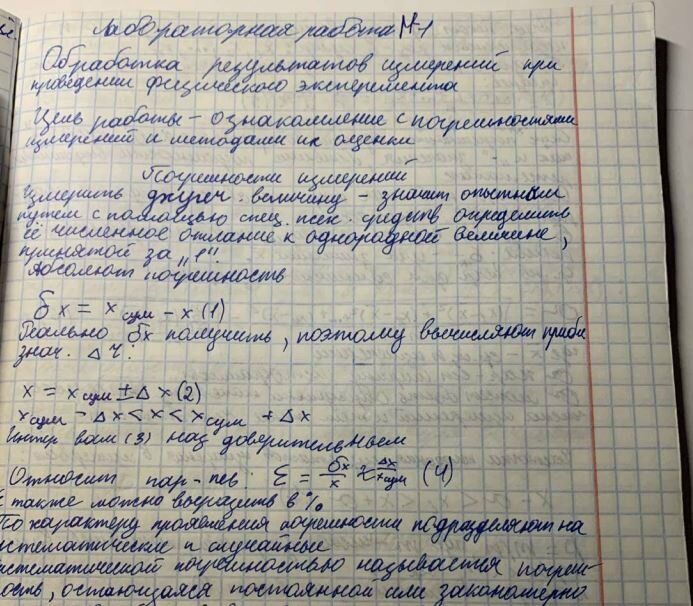 Лабораторная работа №1
Обработка результатов измерений при
проведении физического эксперемента
Цель работы – ознакомление с погрешностями
измерений и методами их оценки
Погрешности измерений
Измерить величину – значит опытным
путем с помощью спец. средств определить
её численное к однородной величине,
принятой за „1".
Абсолют погрешность
δx = x сум – x (1)
Реально δx получить, поэтому вычисляют приби
знач.
x = x сум ± Δx (2)
x сум – Δx < x < x сум + Δx
Интер вал (3) наз доверительным
Относит : Ɛ = δx/x ≈ Δx/x сум (4)
также можно выразить в %
По характеру проявления погрешности подразделяют на
истематические и случайные
истематической погрешностью называется погреш
ость, остающаяся постоянной или закономерно